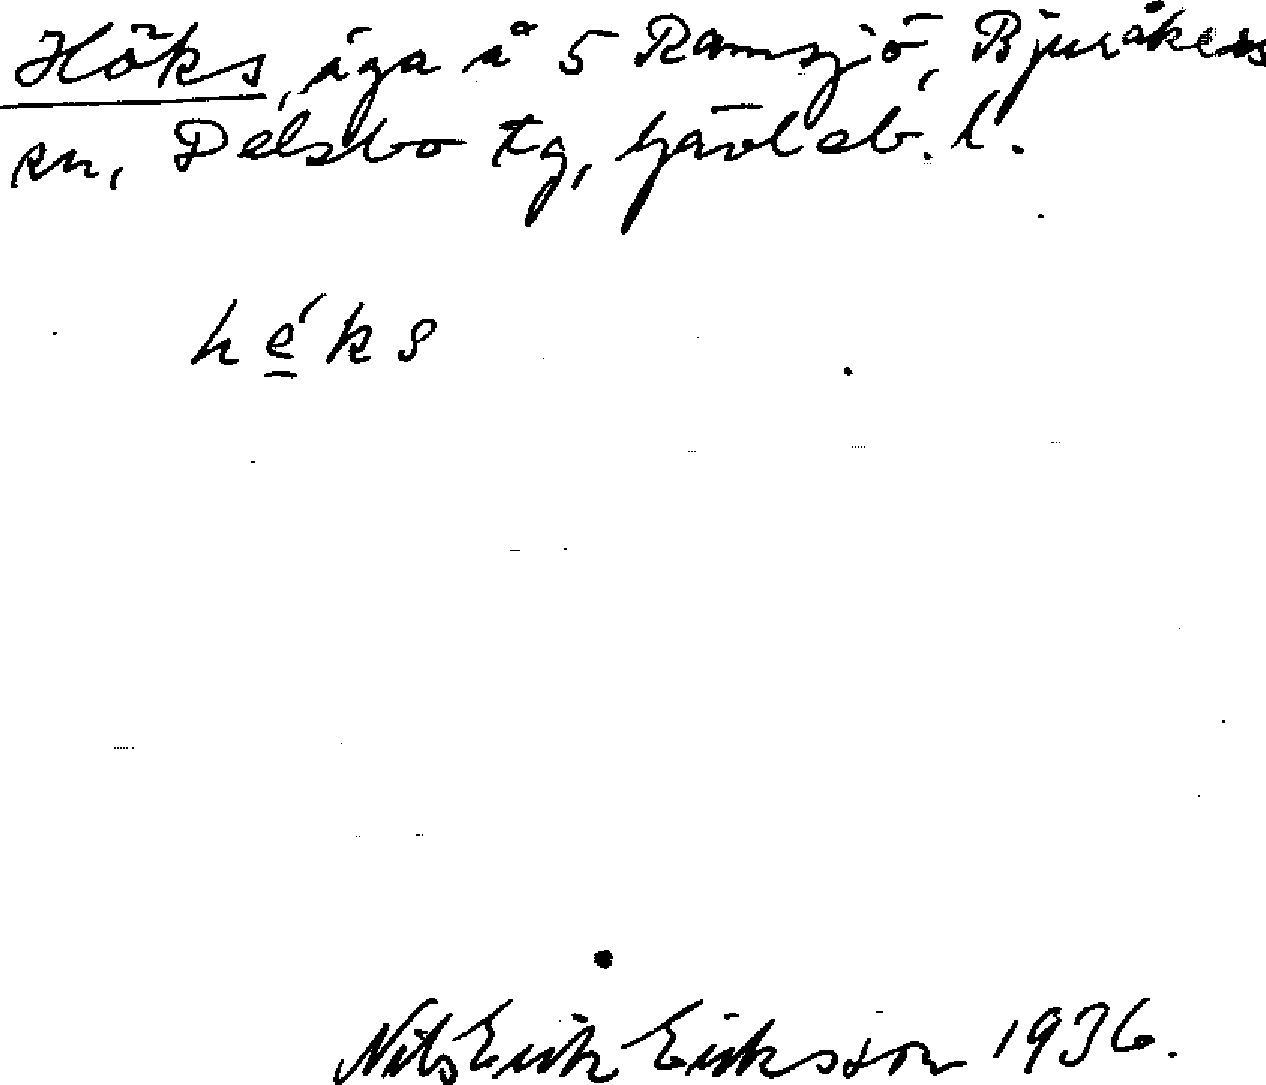 Höks, äga å 5 Ramsjö, Bjuråkers
sn, Delsbo tg, Gävleb. l.
hé̲ks
Nils Erik Eriksson 1936.